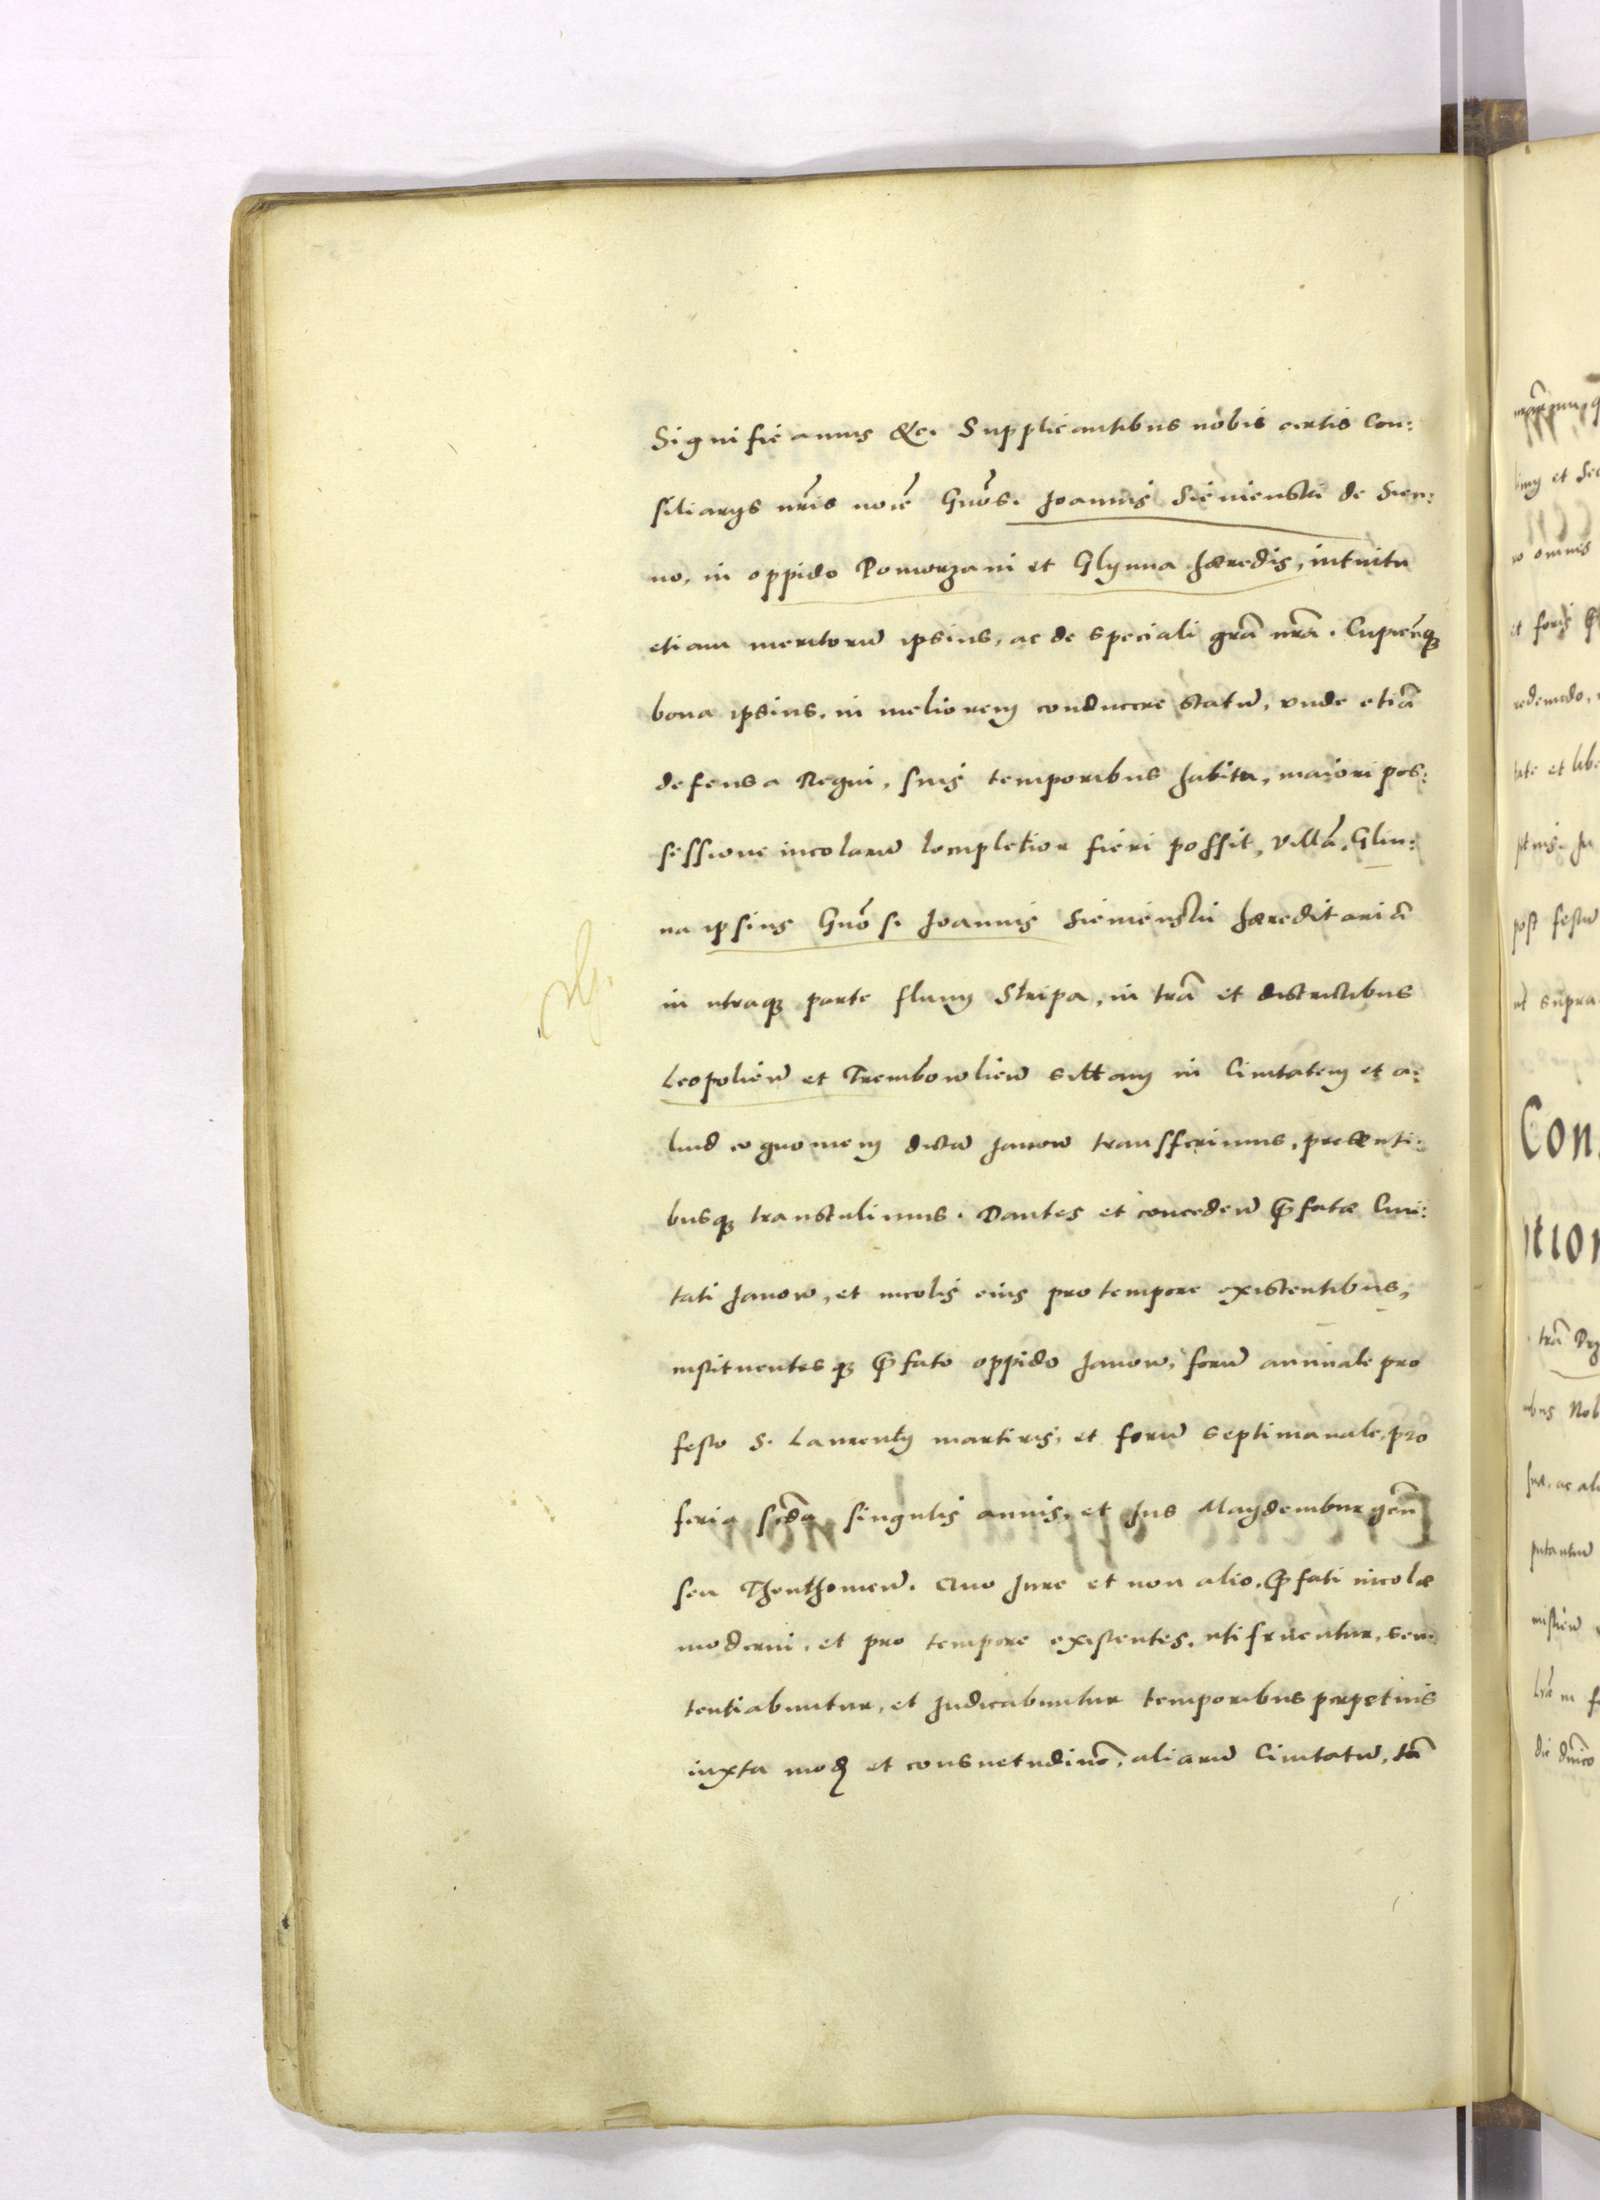 Significamus &c. Supplicantibus nobis certis Con:
siliarys nr̃is noi͂e Gno͂s. Joannis Sieniensky de Sien:
no, in oppido Pomorzani et Glynna hæredis, intuitu
etiam meritoru͂ ipsius, ac de speciali gra͂ nr̃a. Cupien͂q;
bona ipsius, in meliorem conducere statu͂, vnde etia͂
defensa Regni, suis temporibus habita, maiori pos:
sessione incolaru͂ locupletior fieri possit, villa͂, Glin:
na ipsius Gno͂si Joannis Sieniensky hæreditaria͂
in utraq; parte fluuy Stripa, in tra͂ et districtibus
Leopolien͂ et Trembowlien͂ sittam in Ciuitatem et a:
liud cognomem dicta͂ Janow transferimus, presenti:
busq; transtulimus. Dantes et conceden͂ p͂fatæ Ciui:
tati Janow, et incolis eius pro tempore existentibus,
instituentesq; p͂fato oppido Janow, foru͂ annuale pro
festo S. Laurenty martiris, et foru͂ septimanale, pro
feria scd͂a singulis annis, et Jus Maydemburgen͂
seu Thenthonicu͂. Quo Jure et non alio, p͂fati incolæ
moderni, et pro tempore existentes, uti fruentur, sen:
tentiabuntur, et Judicabuntur temporibus perpetuis
iuxta mod͂ et consuetudine͂, aliaru͂ Ciuitatu͂, ta͂